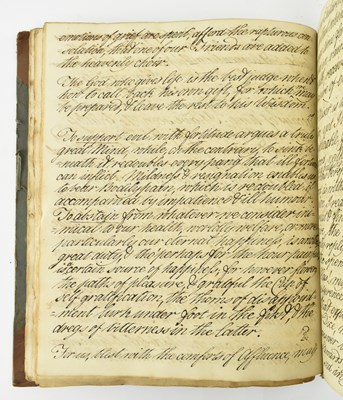 emotions of grief are spent, afford the rapturous con
solation, that one of our Friends are added to
the heavenly choir.
The God who gives life is the best judge when &
how to call back his own gift, for which may
be prepared, & leave the rest to his wisdom.
To support evil with fortitude argues a truly
great Mind, while, on the contrary, to sink be
neath it redoubles every pang that ill fortune
can inflict. Mildness & resignation enables us
to bear Bodily pain, which is redoubled if
accompanied by impatience & ill humour.
To abstain from whatever we consider ini
mical to our health, worldly welfare, or more
particularly our eternal happiness, is another
great duty, & tho' perhaps for the hour painful
is certain source of happiness, for however flowery
the paths of pleasure, & grateful the Cup of
self gratification, the thorns of disappoint
ment lurk under foot in the first, & the
dregs of bitterness in the latter.
For us, blest with the comforts of Affluence, may